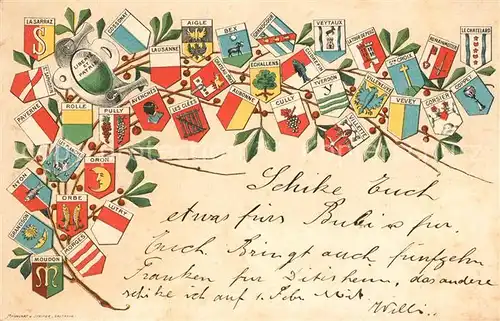 LA SARRAZ
COSSONAY
LAUSANNE
AIGLE
BEX
GRANDCOUR
VEYTAUX
LA TOUR DE PEILZ
STE CROIX
ROMAINMOTIER
LE CHATELARD
LIBERTÉ ET PATRIE
ECHALLENS
YVERDON
VILLENEUVE
COPPET
PAYERNE
ROLLE
PULLY
AVENCHES
LES CLÉES
AUBONNE
CULLY
VILLETTE
VEVEY
CORSIER
NYON
ORON
ORBE
LUTRY
GRANDSON
MORGES
MOUDON
Schike Euch
etwas fürs Bubi u für
Euch. Bringt auch fünfzehn
Franken für Ditisheim, das andere
schike ich auf 1. Febr.
Willi.